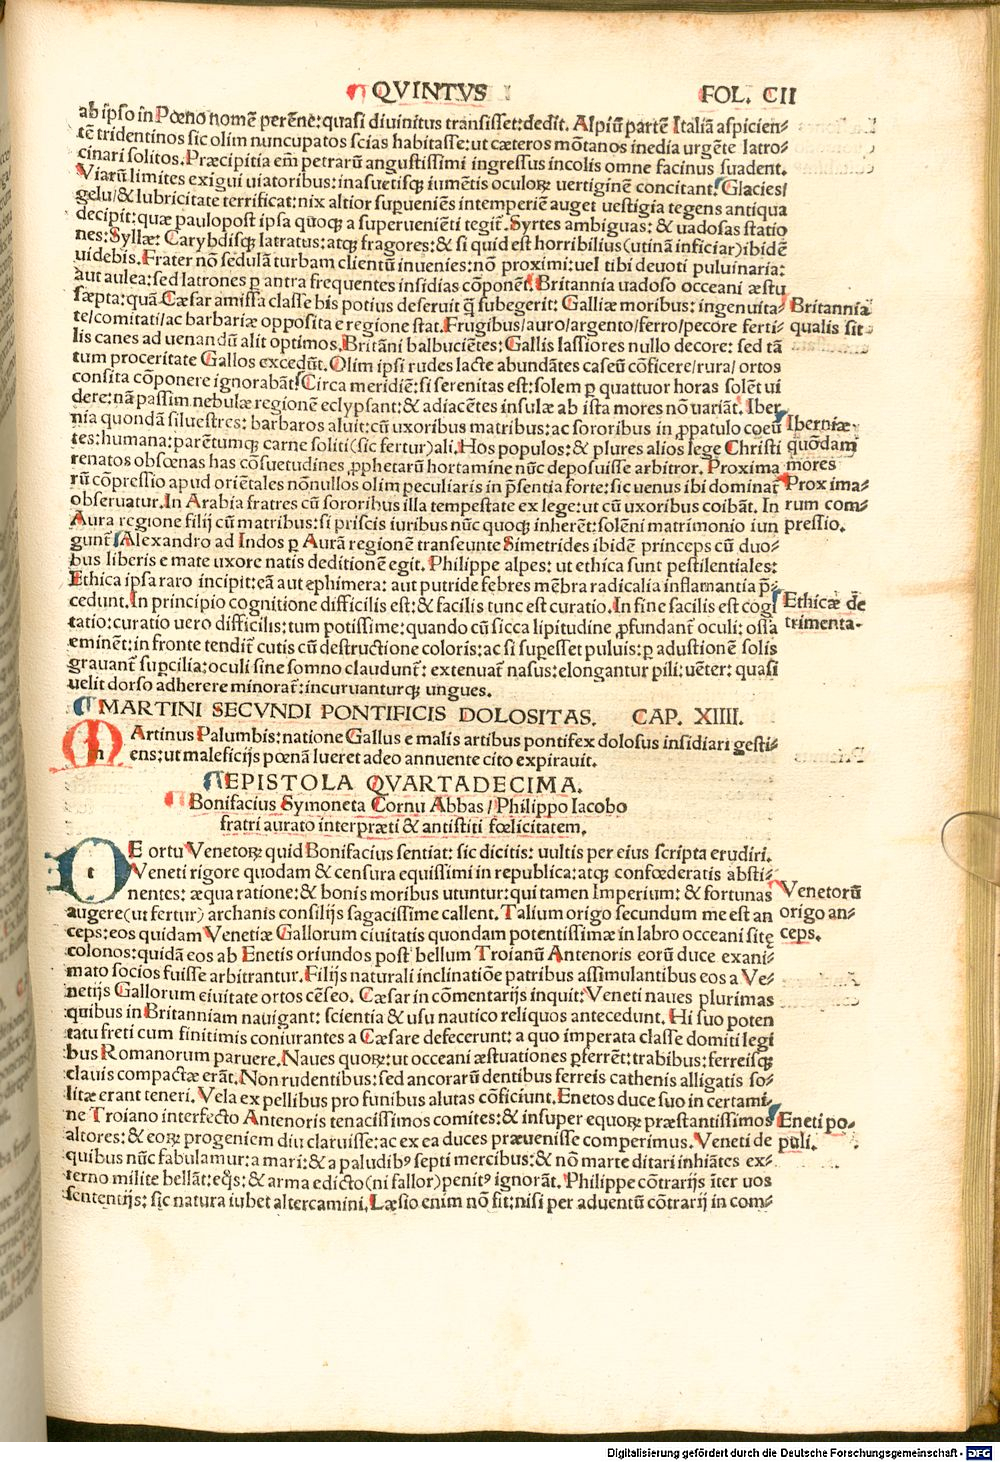 QVINTVS
FOL. CII
ab ip̃so in Pœno nomẽ perẽne: quasi diuinitus transisset: dedit. Alpiũ partẽ Italiã aspicien⸗
tẽ tridentinos sic olim nuncupatos scias habitasse: ut cæteros mõtanos inedia urgẽte latro⸗
cinari solitos. Præcipitia em̃ petrarũ angustissimi ingressus incolis omne facinus suadent.
Viarũ limites exigui uiatoribus: inasuetisqꝫ iumẽtis oculoꝝ uertiginẽ concitant. Glacies/
gelu/& lubricitate terrificat: nix altior supueniẽs intemperiẽ auget uestigia tegens antiqua
decipit: quæ paulopost ipsa quoqꝫ a superueniẽti tegit̃. Syrtes ambiguas: & uadosas statio
nes: Syllæ: Carybdisqꝫ latratus: atqꝫ fragores: & si quid est horribilius (utinã inficiar) ibidẽ
uidebis. Frater nõ sedulã turbam clientũ inuenies: nõ proximi: uel tibi deuoti puluinaria:
aut aulea: sed latrones ꝑ antra frequentes insidias cõponẽt. Britannia uadoso occeani æstu
sæpta: quã Cæsar amissa classe bis potius deseruit q̃ subegerit: Galliæ moribus: ingenuita⸗
te/comitati/ac barbariæ opposita e regione stat. Frugibus/auro/argento/ferro/pecore ferti⸗
lis canes ad uenandũ alit optimos. Britãni balbuciẽtes: Gallis lassiores nullo decore: sed tã
tum proceritate Gallos excedũt. Olim ipsi rudes lacte abundãtes caseũ cõficere/rura/ortos
consita cõponere ignorabãt. Circa meridiẽ: si serenitas est: solem ꝑ quattuor horas solẽt ui
dere: nã passim nebulæ regionẽ eclypsant: & adiacẽtes insulæ ab ista mores nõ uariãt. Iber
nia quondã siluestres: barbaros aluit: cũ uxoribus matribus: ac sororibus in ꝓpatulo coeũ
tes: humana: parẽtumqꝫ carne soliti (sic fertur) ali. Hos populos: & plures alios lege Christi
renatos obscœnas has cõsuetudines ꝓphetarũ hortamine nũc deposuisse arbitror. Proxima
rũ cõpressio apud oriẽtales nõnullos olim peculiaris in p̃sentia forte: sic uenus ibi dominat̃
obseruatur. In Arabia fratres cũ sororibus illa tempestate ex lege: ut cũ uxoribus coibãt. In
Aura regione filij cũ matribus: si priscis iuribus nũc quoqꝫ inherẽt: solẽni matrimonio iun
gunt̃. Alexandro ad Indos ꝑ Aurã regionẽ transeunte Simetrides ibidẽ princeps cũ duo⸗
bus liberis e mate uxore natis deditionẽ egit. Philippe alpes: ut ethica sunt pestilentiales:
Ethica ipsa raro incipit: eã aut ephimera: aut putride febres mẽbra radicalia inflamantia p̃⸗
cedunt. In principio cognitione difficilis est: & facilis tunc est curatio. In fine facilis est cogi
tatio: curatio uero difficilis: tum potissime: quando cũ sicca lipitudine ꝓfundant̃ oculi: ossa
eminẽt: in fronte tendit̃ cutis cũ destructione coloris: ac si supesset puluis: ꝑ adustionẽ solis
grauant̃ supcilia: oculi sine somno claudunt̃: extenuat̃ nasus: elongantur pili: uẽter: quasi
uelit dorso adherere minorat̃: incuruanturqꝫ ungues.
Britannia
qualis sit
Iberniæ
quõdam
mores
Proxima⸗
rum com⸗
pressio.
Ethicæ de
trimenta.
MARTINI SECVNDI PONTIFICIS DOLOSITAS. CAP. XIIII.
MArtinus Palumbis: natione Gallus e malis artibus pontifex dolosus insidiari gesti⸗
ens: ut maleficijs pœnã lueret adeo annuente cito expirauit.
EPISTOLA QVARTADECIMA.
Bonifacius Symoneta Cornu Abbas/Philippo Iacobo
fratri aurato interpræti & antistiti fœlicitatem.
DE ortu Venetoꝝ quid Bonifacius sentiat: sic dicitis: uultis per eius scripta erudiri.
Veneti rigore quodam & censura equissimi in republica: atqꝫ confœderatis absti⸗
nentes: æqua ratione: & bonis moribus utuntur: qui tamen Imperium: & fortunas
augere (ut fertur) archanis consilijs sagacissime callent. Talium origo secundum me est an
ceps: eos quidam Venetiæ Gallorum ciuitatis quondam potentissimæ in labro occeani sitę
colonos: quidã eos ab Enetis oriundos post bellum Troianũ Antenoris eorũ duce exani⸗
mato socios fuisse arbitrantur. Filijs naturali inclinatiõe patribus assimulantibus eos a Ve⸗
netijs Gallorum eiuitate ortos cẽseo. Cæsar in cõmentarijs inquit: Veneti naues plurimas
quibus in Britanniam nauigant: scientia & usu nautico reliquos antecedunt. Hi suo poten
tatu freti cum finitimis coniurantes a Cæsare defecerunt: a quo imperata classe domiti legi
bus Romanorum paruere. Naues quoꝝ: ut occeani æstuationes ꝑferrẽt: trabibus: ferreisqꝫ
clauis compactæ erãt. Non rudentibus: sed ancorarũ dentibus ferreis cathenis alligatis so⸗
litæ erant teneri. Vela ex pellibus pro funibus alutas cõficiunt. Enetos duce suo in certami
ne Troiano interfecto Antenoris tenacissimos comites: & insuper equoꝝ præstantissimos
altores: & eoꝝ progeniem diu claruisse: ac ex ea duces præuenisse comperimus. Veneti de
quibus nũc fabulamur: a mari: & a paludibꝰ septi mercibus: & nõ marte ditari inhiãtes ex⸗
terno milite bellãt: eq̃s: & arma edicto (ni fallor) penitꝰ ignorãt. Philippe cõtrarijs ĩter uos
sententijs: sic natura iubet altercamini. Læsio enim nõ fit: nisi per aduentũ cõtrarij in com⸗
Venetorũ
origo an⸗
ceps.
Eneti po⸗
puli.
Digitalisierung gefördert durch die Deutsche Forschungsgemeinschaft - DFG